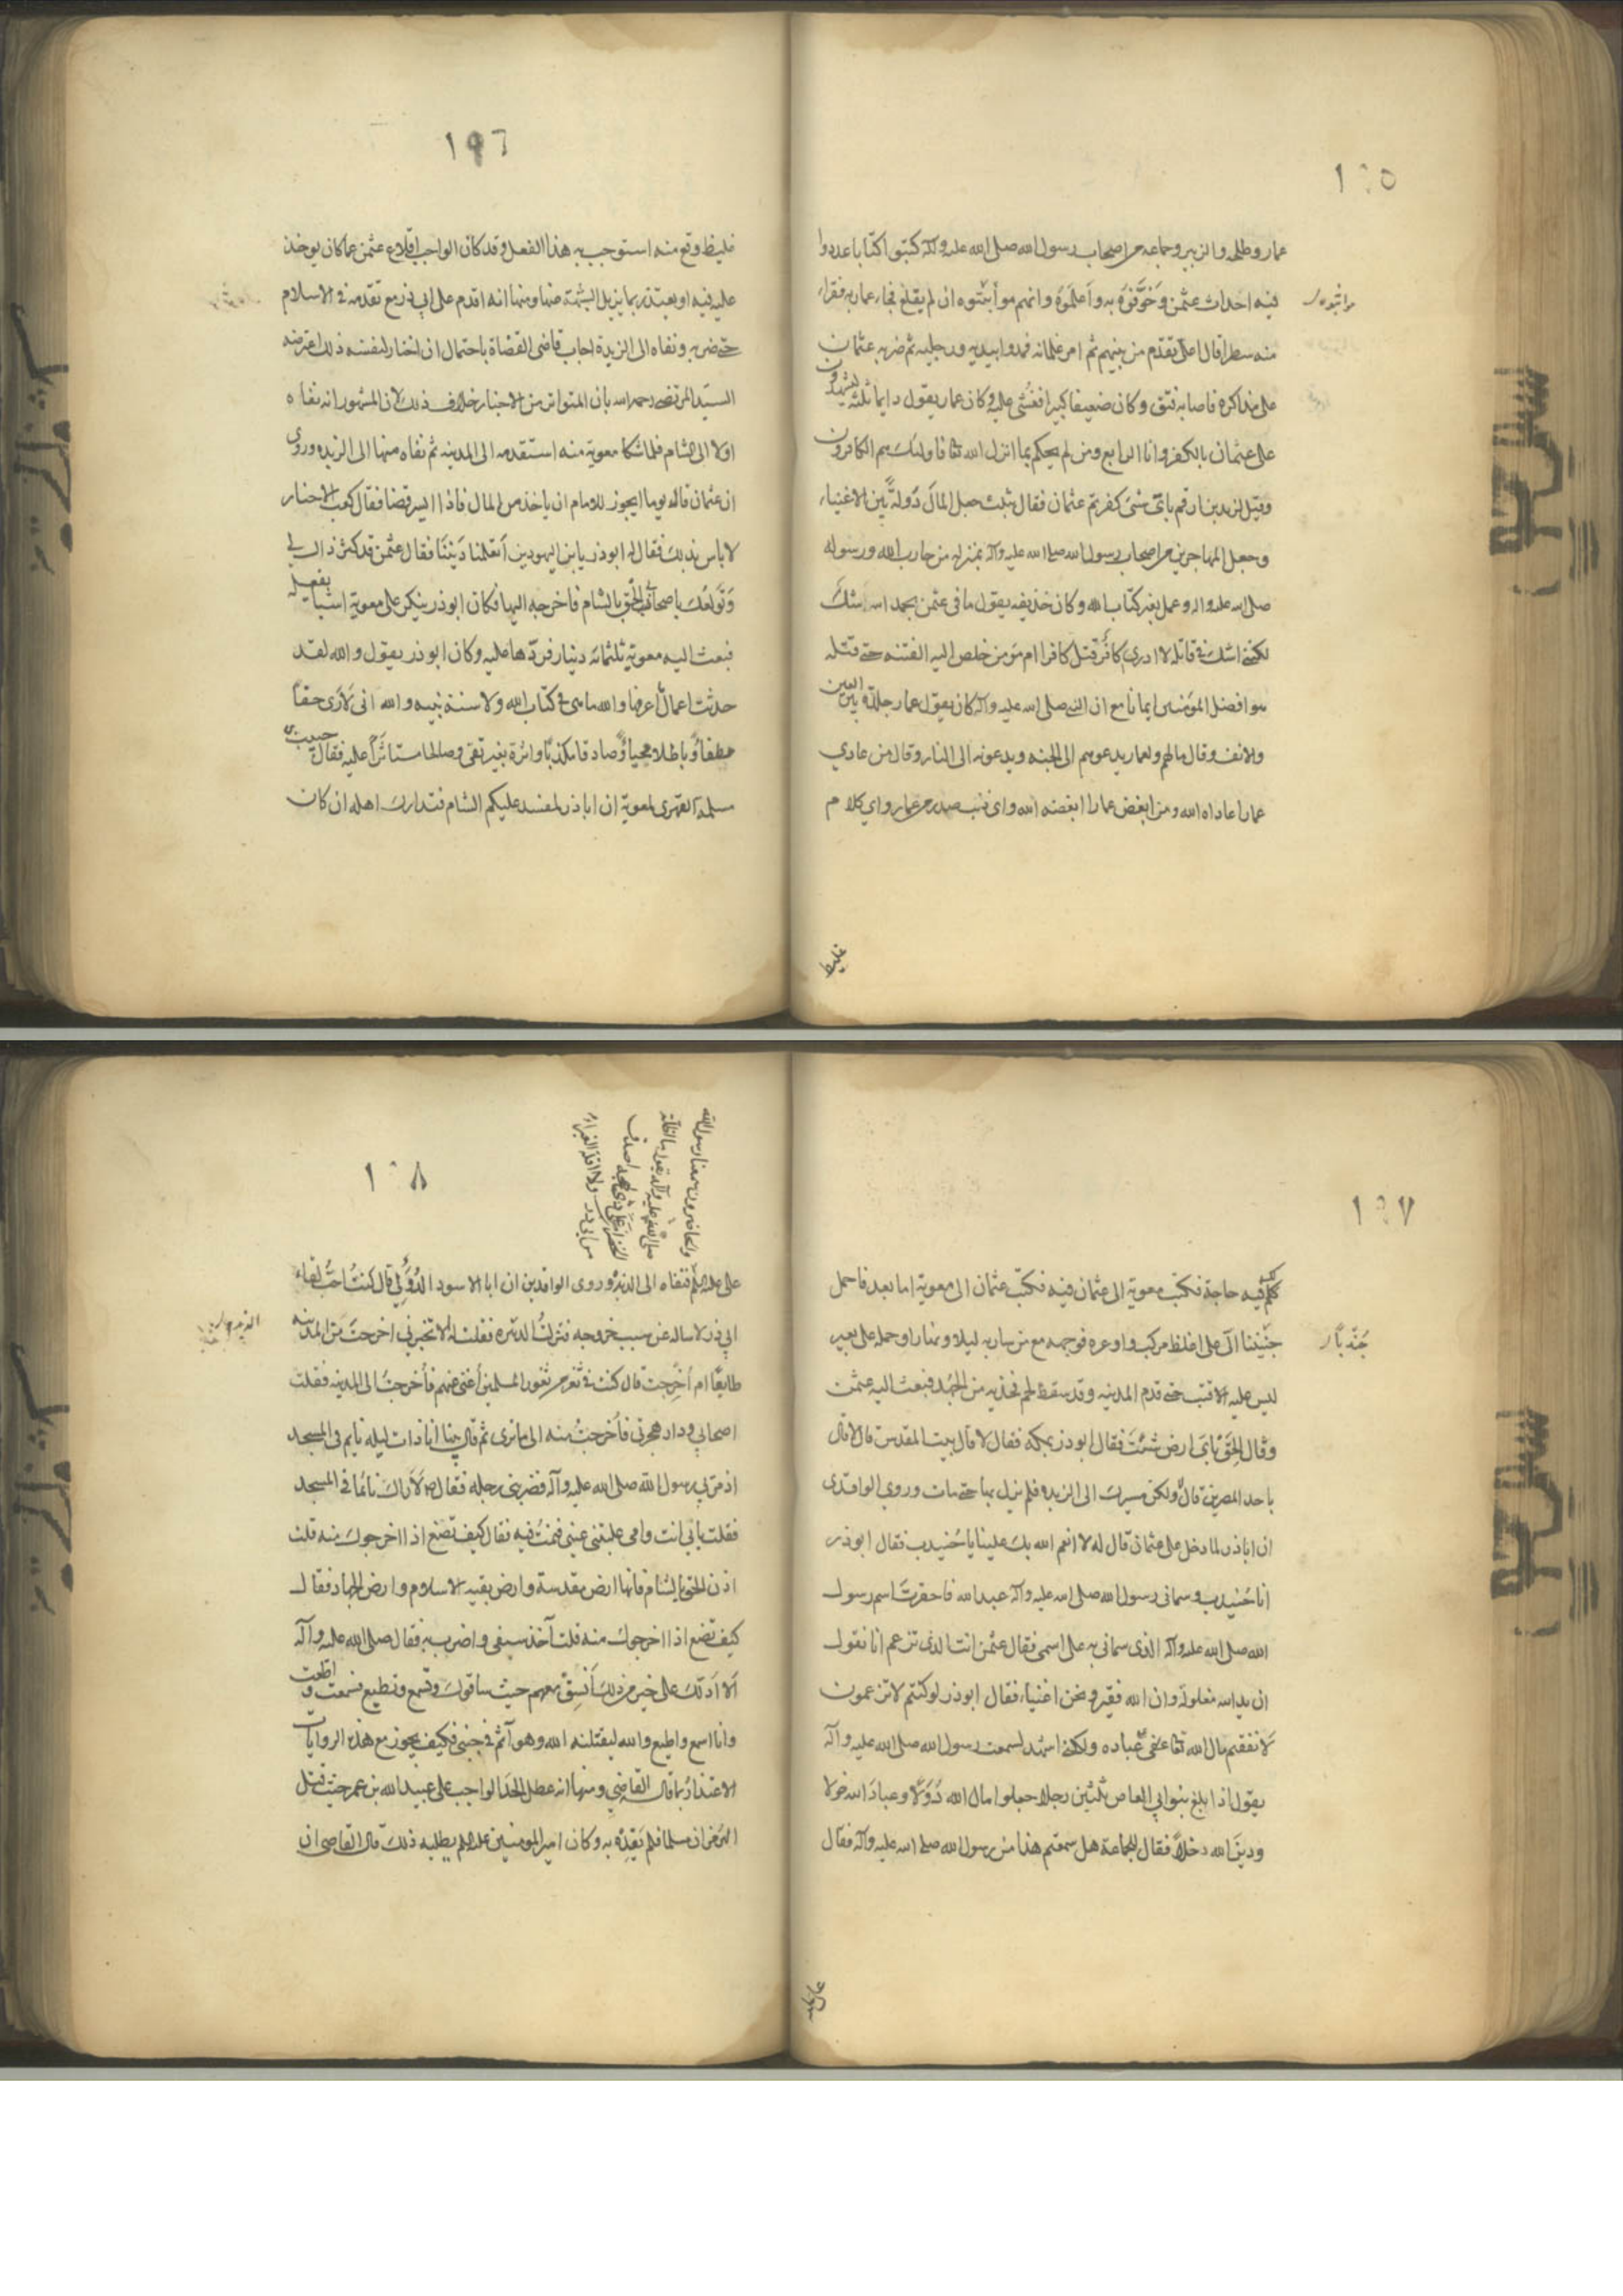 ١٩٥
عمار وطلحه والزبير وجماعه من اصحاب رسول الله صلى الله عليه وآله كتبوا كتابا عددوا
فيه احداث عثمن وخوفوه به واعلموه وانهم مواثبوه ان لم يقلع فجاء عمار به فقراء
مواثبوه
منه سطرا فقال اعلى تقدم من بينهم ثم امر غلمانه فمدوا بيديه ورجليه ثم ضربه عثمان
على مذاكره فاصابه فتق وكان ضعيفا كبيرا فغشى عليه وكان عمار يقول دايما ثلثه يشهدون
على عثمان بالكفر وانا الرابع ومن لم يحكم بما انزل الله فاولئك هم الكافرون
وقيل لزيد بن ارقم باى شئ كفرتم عثمان فقال بثلث جعل المال دولة بين الاغنياء
وجعل المهاجرين من اصحاب رسول الله صلى الله عليه وآله بمنزله من حارب الله ورسوله
صلى الله عليه واله وعمل بغير كتاب الله وكان حذيفه يقول ما فى عثمن بحمد الله اشك
لكنى اشك فى قاتله لا ادرى اكافر قتل كافرا ام مؤمن خلص اليه الفتنه حتى قتله
هو افضل المؤمنين ايمانا مع ان النبى صلى الله عليه وآله كان يقول عمار جلدة بين العين
والانف وقال مالهم ولعمار يدعوهم الى الجنه ويدعونه الى النار وقال من عادي
عمارا عاداه الله ومن ابغض عمارا ابغضه الله واى ذنب صدر من عمار واي كلام
غليظ
١٩٦
غليظ وقع منه استوجب به هذا الفعل وقد كان الواجب اقلاع عثمن عما كان يوخذ
عليه فيه او يعتذر بما يزيل الشبهة عنها ومنها انه اقدم على ابى ذر مع تقدمه فى الاسلام
حتى ضربه ونفاه الى الربذة اجاب قاضى القضاة باحتمال ان اختار لنفسه ذلك اعترضه
السيد المرتضى رحمه الله بان المتواتر من الاخبار خلاف ذلك لان المشهور انه نفاه
اولا الى الشام فلما شكا معوية منه استقدمه الى المدينه ثم نفاه منها الى الربذه وروى
ان عثمان قال يوما ايجوز للامام ان ياخذ من المال فاذا ايسر قضا فقال كعب الاحبار
لا باس بذلك فقال له ابوذر يا بن اليهوديين اتعلمنا ديننا فقال عثمن قد كثر ذاك لي
وتولعك باصحابى الحق بالشام فاخرجه اليها فكان ابوذر ينكر على معوية اشياء يفعله
فبعث اليه معوية ثلثمائه دينار فردها عليه وكان ابو ذر يقول والله لقد
حدثت اعمال ما اعرفها والله ما هى فى كتاب الله ولا سنة نبيه والله انى لارى حقا
مطفأ وباطلا محييا وصادقا مكذبا واثرة بغير تقى وصالحا مستاثرا عليه فقال حبيب بن
مسلمه الفهرى لمعوية ان اباذر لمفسد عليكم الشام فتدارك اهله ان كان
١٩٧
لكم فيه حاجة فكتب معوية الى عثمان فيه فكتب عثمان الى معوية اما بعد فاحمل
جنيدبا الى على اغلظ مركب واوعره فوجهه مع من سار به ليلا ونهارا وحمله على بعير
جندبا
ليس عليه الا قتب حتى قدم المدينه وقد سقط لحم فخذيه من الجهد فبعث اليه عثمن
وقال الحق باى ارض شئت فقال ابوذر بمكه فقال لا قال ببيت المقدس قال لا قال
باحد المصرين قال لا ولكن مسيرك الى الربذه فلم يزل بها حتى مات وروى الواقدى
ان اباذر لما دخل على عثمان قال له لا انعم الله بك علينا يا جنيدب فقال ابوذر
انا جنيدب وسمانى رسول الله صلى الله عليه وآله عبد الله فاخترت اسم رسول
الله صلى الله عليه وآله الذى سمانى به على اسمى فقال عثمن انت الذى تزعم انا نقول
ان يد الله مغلولة وان الله فقير ونحن اغنياء فقال ابوذر لو كنتم لا تزعمون
لانفقتم مال الله على عباده ولكنى اشهد لسمعت رسول الله صلى الله عليه وآله
يقول اذا بلغ بنو ابي العاص ثلثين رجلا جعلوا مال الله دولا وعباد الله خولا
ودين الله دخلا فقال للجماعة هل سمعتم هذا من رسول الله صلى الله عليه وآله فقال
على عليه
١٩٨
والحاضرون سمعنا رسول الله
صلى الله عليه وآله يقول ما اظلت
الخضراء على ذى لهجه اصدق
من ابى ذر ولا اقلت الغبراء
على عليه السلم فنفاه الى الربذه وروى الواقدى ان ابا الاسود الدؤلي قال كنت احب لقاء
ابي ذر لاساله عن سبب خروجه فنزلت الربذه فقلت له الا تخبرنى اخرجت من المدينه
طايعا ام اخرجت قال كنت فى ثغر من ثغور المسلمين اغنى عنهم فاخرجت الى المدينه فقلت
اصحابي ودار هجرتى فاخرجت منه الى ما ترى ثم قال بينا انا ذات ليله نايم فى المسجد
اذ مر بي رسول الله صلى الله عليه وآله فضربنى برجله فقال لا اراك نائما فى المسجد
فقلت بابي انت وامى غلبتنى عينى فنمت فيه فقال كيف تصنع اذا اخرجوك منه قلت
اذن الحق بالشام فانها ارض مقدسة وارض بقية الاسلام وارض الجهاد فقال
كيف تصنع اذا اخرجوك منه قلت آخذ سيفى واضرب به فقال صلى الله عليه وآله
الا ادلك على خير من ذلك انسق معهم حيث ساقوك وتسمع وتطيع فسمعت واطعت
وانا اسمع واطيع والله ليقتلنه الله وهو آثم فى جنبى فكيف يجوز مع هذه الروايات
الاعتذار بما قال القاضي ومنها انه عطل الحد الواجب على عبيد الله بن عمر حيث قتل
الهرمزان مسلما فلم يقده به وكان امير المومنين عليه السلم يطلبه ذلك قال القاضى ان